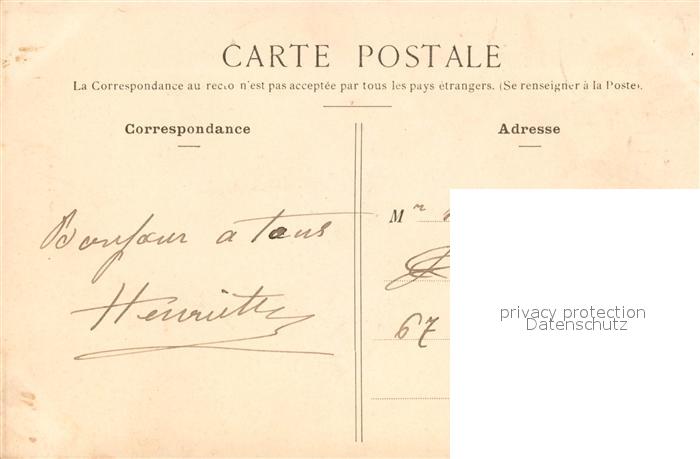 CARTE POSTALE
La Correspondance au recto n'est pas acceptée par tous les pays étrangers. (Se renseigner à la Poste).
Correspondance
Adresse
Bonjour a tous
Henriette
Mr
67
privacy protection
Datenschutz